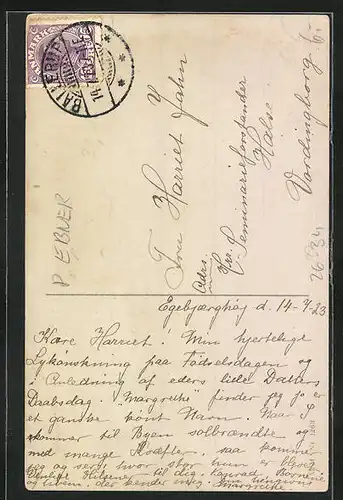 DANMARK
BALLERUP
Frue Harriet Jahn
Adrs.
Hr. Seminarieforstander
Halse
Vordingborg
P. EBNER
Egebjærghøj d. 14-7-23
Kære Harriet! Min hjerteligste
Lykønskning paa Fødselsdagen og
i Anledning af eders lille Datters
Daabsdag. "Margrethe" finder jeg jo er
et ganske kønt Navn. Naar I
kommer til Byen solbrændte og
med mange Kræfter, saa kommer
jeg og ser, hvor stor hun er blevet.
Hilsener til dig, Børnene
og der kender mig.